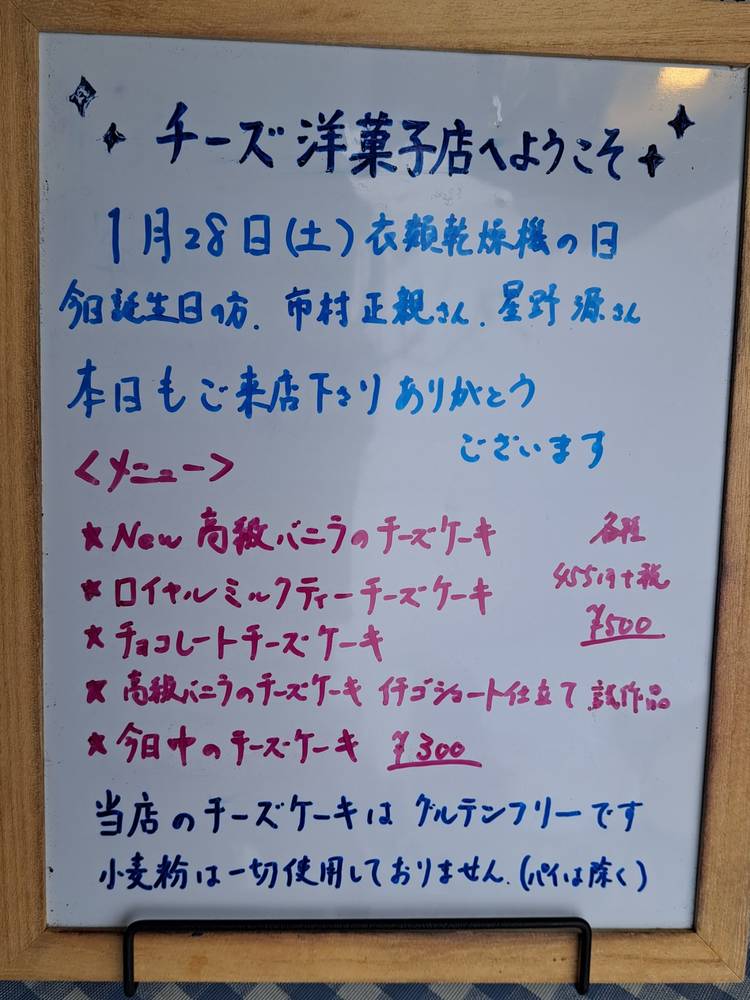 チーズ洋菓子店へようこそ
1月28日(土)衣類乾燥機の日
今日誕生日の方、市村正親さん、星野源さん
本日もご来店下さりありがとう
ございます
<メニュー>
★New 高級バニラのチーズケーキ
★ロイヤルミルクティーチーズケーキ
★チョコレートチーズケーキ
各種
455円+税
¥500
★高級バニラのチーズケーキ イチゴショート仕立て 試作品
★今日中のチーズケーキ ¥300
当店のチーズケーキはグルテンフリーです
小麦粉は一切使用しておりません。(パイは除く)